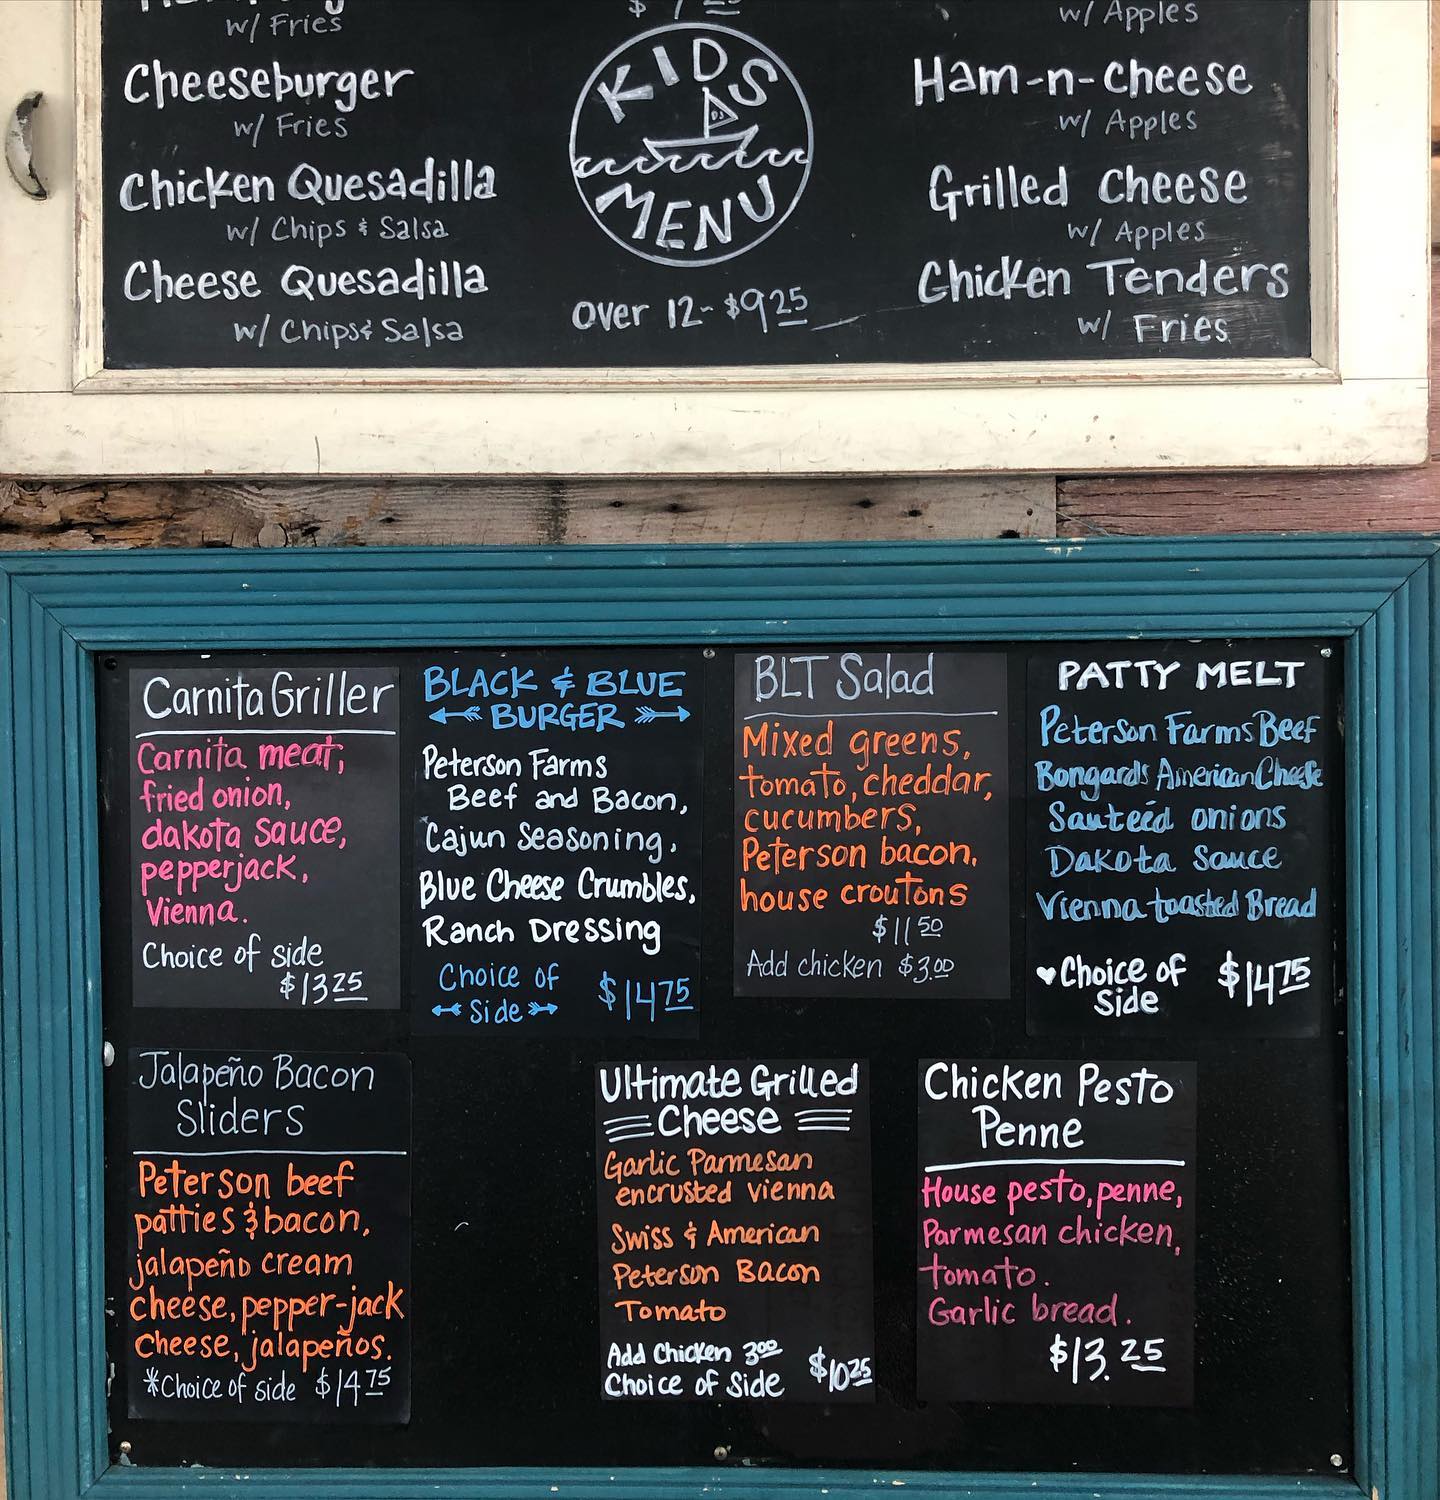 w/ Fries
Cheeseburger
w/ Fries
Chicken Quesadilla
w/ Chips & Salsa
Cheese Quesadilla
w/ Chips & Salsa
KIDS
DS
MENU
Over 12- $9.25
w/ Apples
Ham-n-cheese
w/ Apples
Grilled Cheese
w/ Apples
Chicken Tenders
w/ Fries
Carnita Griller
Carnita meat,
fried onion,
dakota sauce,
pepperjack,
Vienna.
Choice of side
$13.25
BLACK & BLUE
BURGER
Peterson Farms
Beef and Bacon,
Cajun Seasoning,
Blue Cheese Crumbles,
Ranch Dressing
Choice of
Side
$14.75
BLT Salad
Mixed greens,
tomato, cheddar,
cucumbers,
Peterson bacon,
house croutons
$11.50
Add chicken $3.00
PATTY MELT
Peterson Farms Beef
Bongards American Cheese
Sauteéd onions
Dakota Sauce
Vienna toasted Bread
Choice of
Side
$14.75
Jalapeño Bacon
Sliders
Peterson beef
patties & bacon,
jalapeño cream
cheese, pepper-jack
cheese, jalapeños.
*Choice of side $14.75
Ultimate Grilled
Cheese
Garlic Parmesan
encrusted vienna
Swiss & American
Peterson Bacon
Tomato
Add Chicken 3.00
Choice of Side
$10.25
Chicken Pesto
Penne
House pesto, penne,
Parmesan chicken,
tomato.
Garlic bread.
$13.25